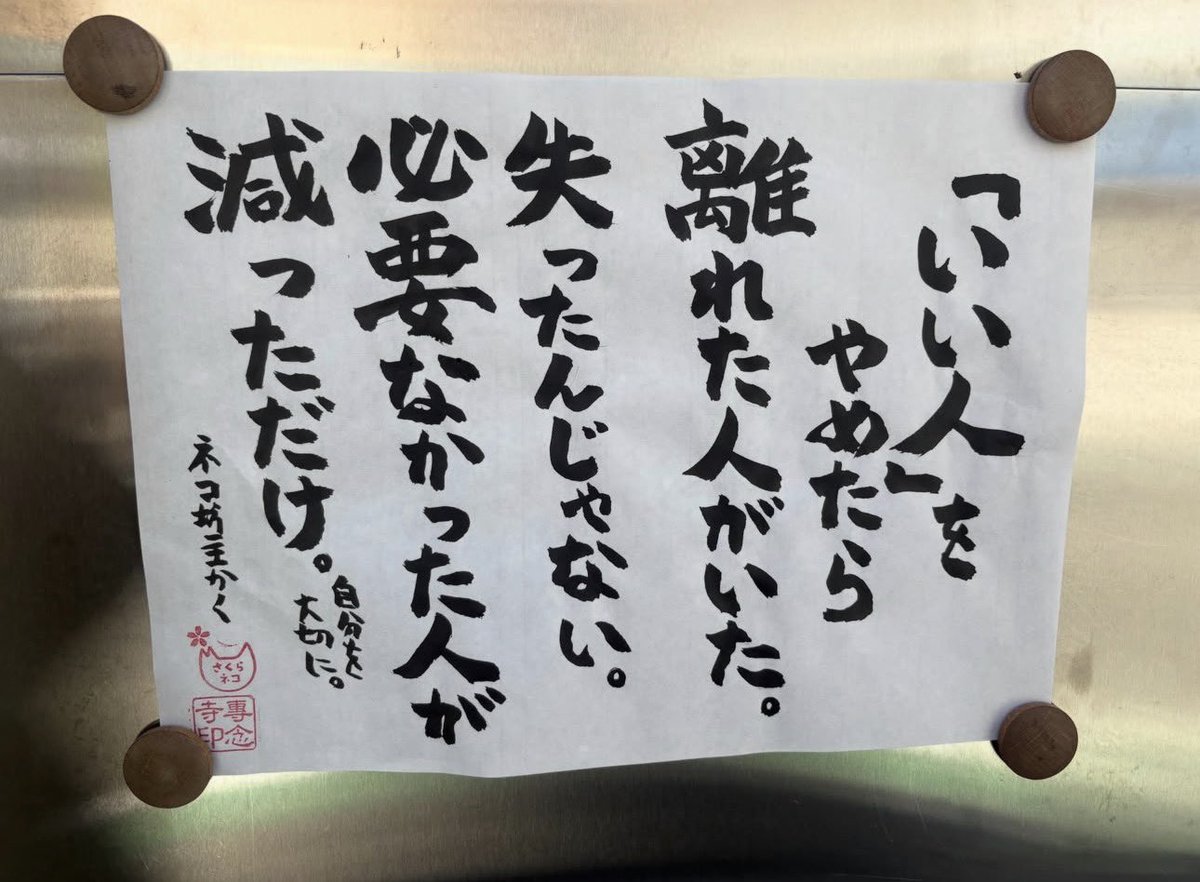 「いい人」を
やめたら
離れた人がいた。
失ったんじゃない。
必要なかった人が
減っただけ。
自分を
大切に。
ネコ坊主かく
さくら
ネコ
專念
寺印